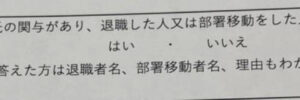 の関与があり、退職した人又は部署移動をした
はい ・ いいえ
答えた方は退職者名、部署移動者名、理由もわか